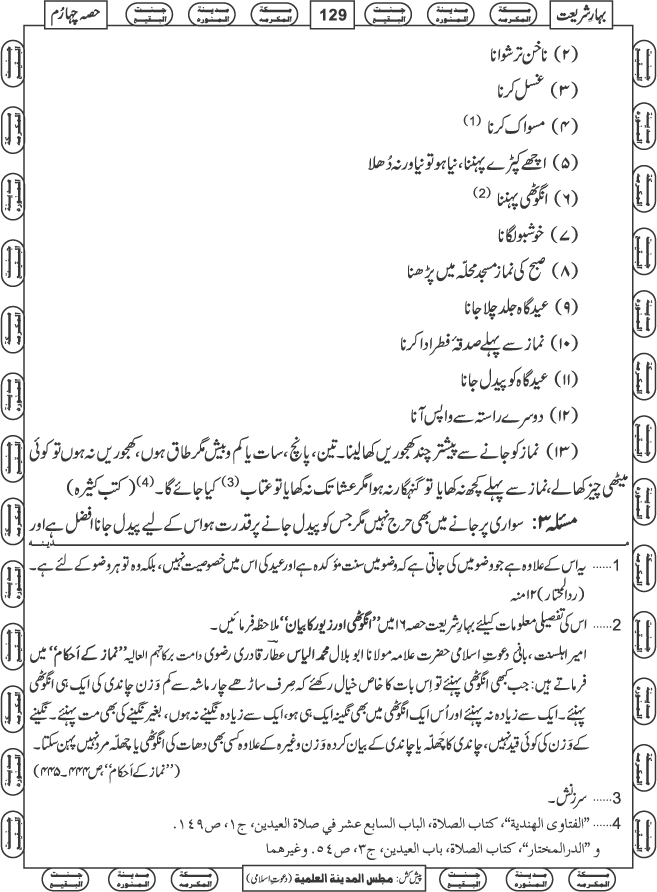 بہارِ شریعت
جنت البقیع
مدینۃ المنورہ
مکۃ المکرمہ
129
جنت البقیع
مدینۃ المنورہ
مکۃ المکرمہ
حصہ چہارم
(۲) ناخن ترشوانا
(۳) غسل کرنا
(۴) مسواک کرنا (1)
(۵) اچھے کپڑے پہننا، نیا ہو تو نیا ورنہ دُھلا
(۶) انگوٹھی پہننا (2)
(۷) خوشبو لگانا
(۸) صبح کی نماز مسجد محلّہ میں پڑھنا
(۹) عیدگاہ جلد چلا جانا
(۱۰) نماز سے پہلے صدقۂ فطر ادا کرنا
(۱۱) عیدگاہ کو پیدل جانا
(۱۲) دوسرے راستہ سے واپس آنا
(۱۳) نماز کو جانے سے پیشتر چند کھجوریں کھا لینا۔ تین، پانچ، سات یا کم و بیش مگر طاق ہوں، کھجوریں نہ ہوں تو کوئی
میٹھی چیز کھا لے، نماز سے پہلے کچھ نہ کھایا تو گنہگار نہ ہوا مگر عشا تک نہ کھایا تو عتاب (3) کیا جائے گا۔ (4) (کتب کثیرہ)
مسئلہ ۳: سواری پر جانے میں بھی حرج نہیں مگر جس کو پیدل جانے پر قدرت ہو اس کے لیے پیدل جانا افضل ہے اور
1 ...... یہ اس کے علاوہ ہے جو وضو میں کی جاتی ہے کہ وضو میں سنت مؤکدہ ہے اور عید کی اس میں خصوصیت نہیں، بلکہ وہ تو ہر وضو کے لئے ہے۔
(ردالمحتار) ۱۲ منہ
2 ...... اس کی تفصیلی معلومات کیلئے بہارِ شریعت حصہ ۱۶ میں ”انگوٹھی اور زیور کا بیان“ ملاحظہ فرمائیں۔
امیرِ اہلسنت، بانیِ دعوتِ اسلامی حضرت علامہ مولانا ابو بلال محمد الیاس عطار قادری رضوی دامت برکاتہم العالیہ ”نماز کے احکام“ میں
فرماتے ہیں: جب کبھی انگوٹھی پہنئے تو اِس بات کا خاص خیال رکھئے کہ صِرف ساڑھے چار ماشہ سے کم وَزن چاندی کی ایک ہی انگوٹھی
پہنئے۔ ایک سے زیادہ نہ پہنئے اور اُس ایک انگوٹھی میں بھی نگینہ ایک ہی ہو، ایک سے زیادہ نگینے نہ ہوں، بغیر نگینے کی بھی مت پہنئے۔ نگینے
کے وَزن کی کوئی قید نہیں، چاندی کا چَھلّہ یا چاندی کے بیان کردہ وَزن وغیرہ کے علاوہ کسی بھی دھات کی انگوٹھی یا چھلّہ مرد نہیں پہن سکتا۔
(”نماز کے احکام“، ص ۴۴۴۔۴۴۵)
3 ...... سرزنش۔
4 ...... ”الفتاوی الھندیۃ“، کتاب الصلاۃ، الباب السابع عشر في صلاۃ العیدین، ج۱، ص۱۴۹.
و ”الدرالمختار“، کتاب الصلاۃ، باب العیدین، ج۳، ص۵۴. وغیرھما
پیش کش: مجلس المدینۃ العلمیۃ (دعوتِ اسلامی)